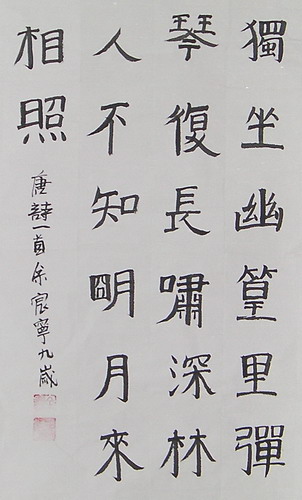 獨坐幽篁里彈
琴復長嘯深林
人不知朙月來
相照
唐詩一首余宸寧九歲